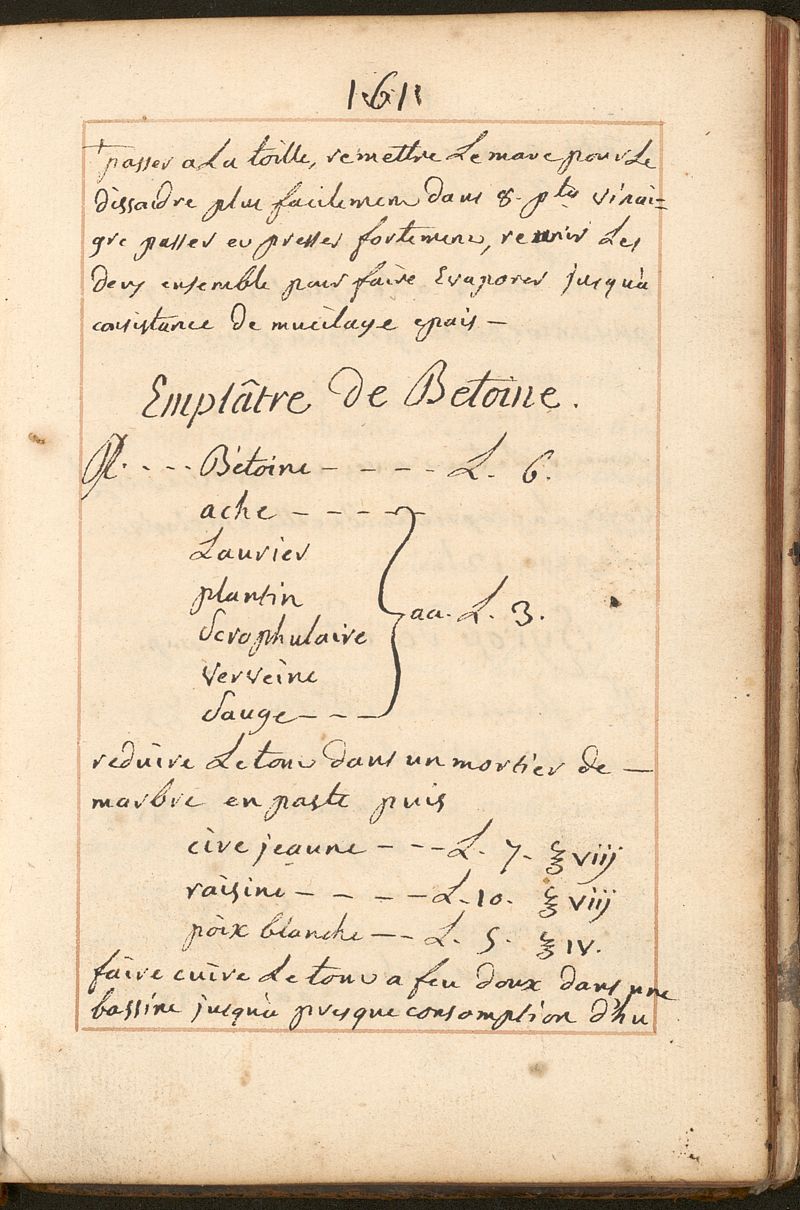 161
passer a La toille, remettre Le marc pour Le
dissoidre plus facilement dans 8. pte vinai=
gre passer et presser fortement, reunir Les
deux ensemble pour faire Evaporer jusqu'a
consistance de mucilage epais —
Emplâtre de Betoine.
℞. - - - Bétoine - - - - L. 6.
ache - - - -
Laurier
plantin
Scrophulaire
verveine
Sauge - - -
aa. L. 3.
reduire Le tout dans un mortier de —
marbre en paste puis
cire jeaune - - - L. 7. ℥ viij
raisine - - - - L. 10. ℥ viij
poix blanche - - L. 5. ℥ IV.
faire cuire Le tout a feu doux dans une
bassine jusqu'a presque consomption d'hu